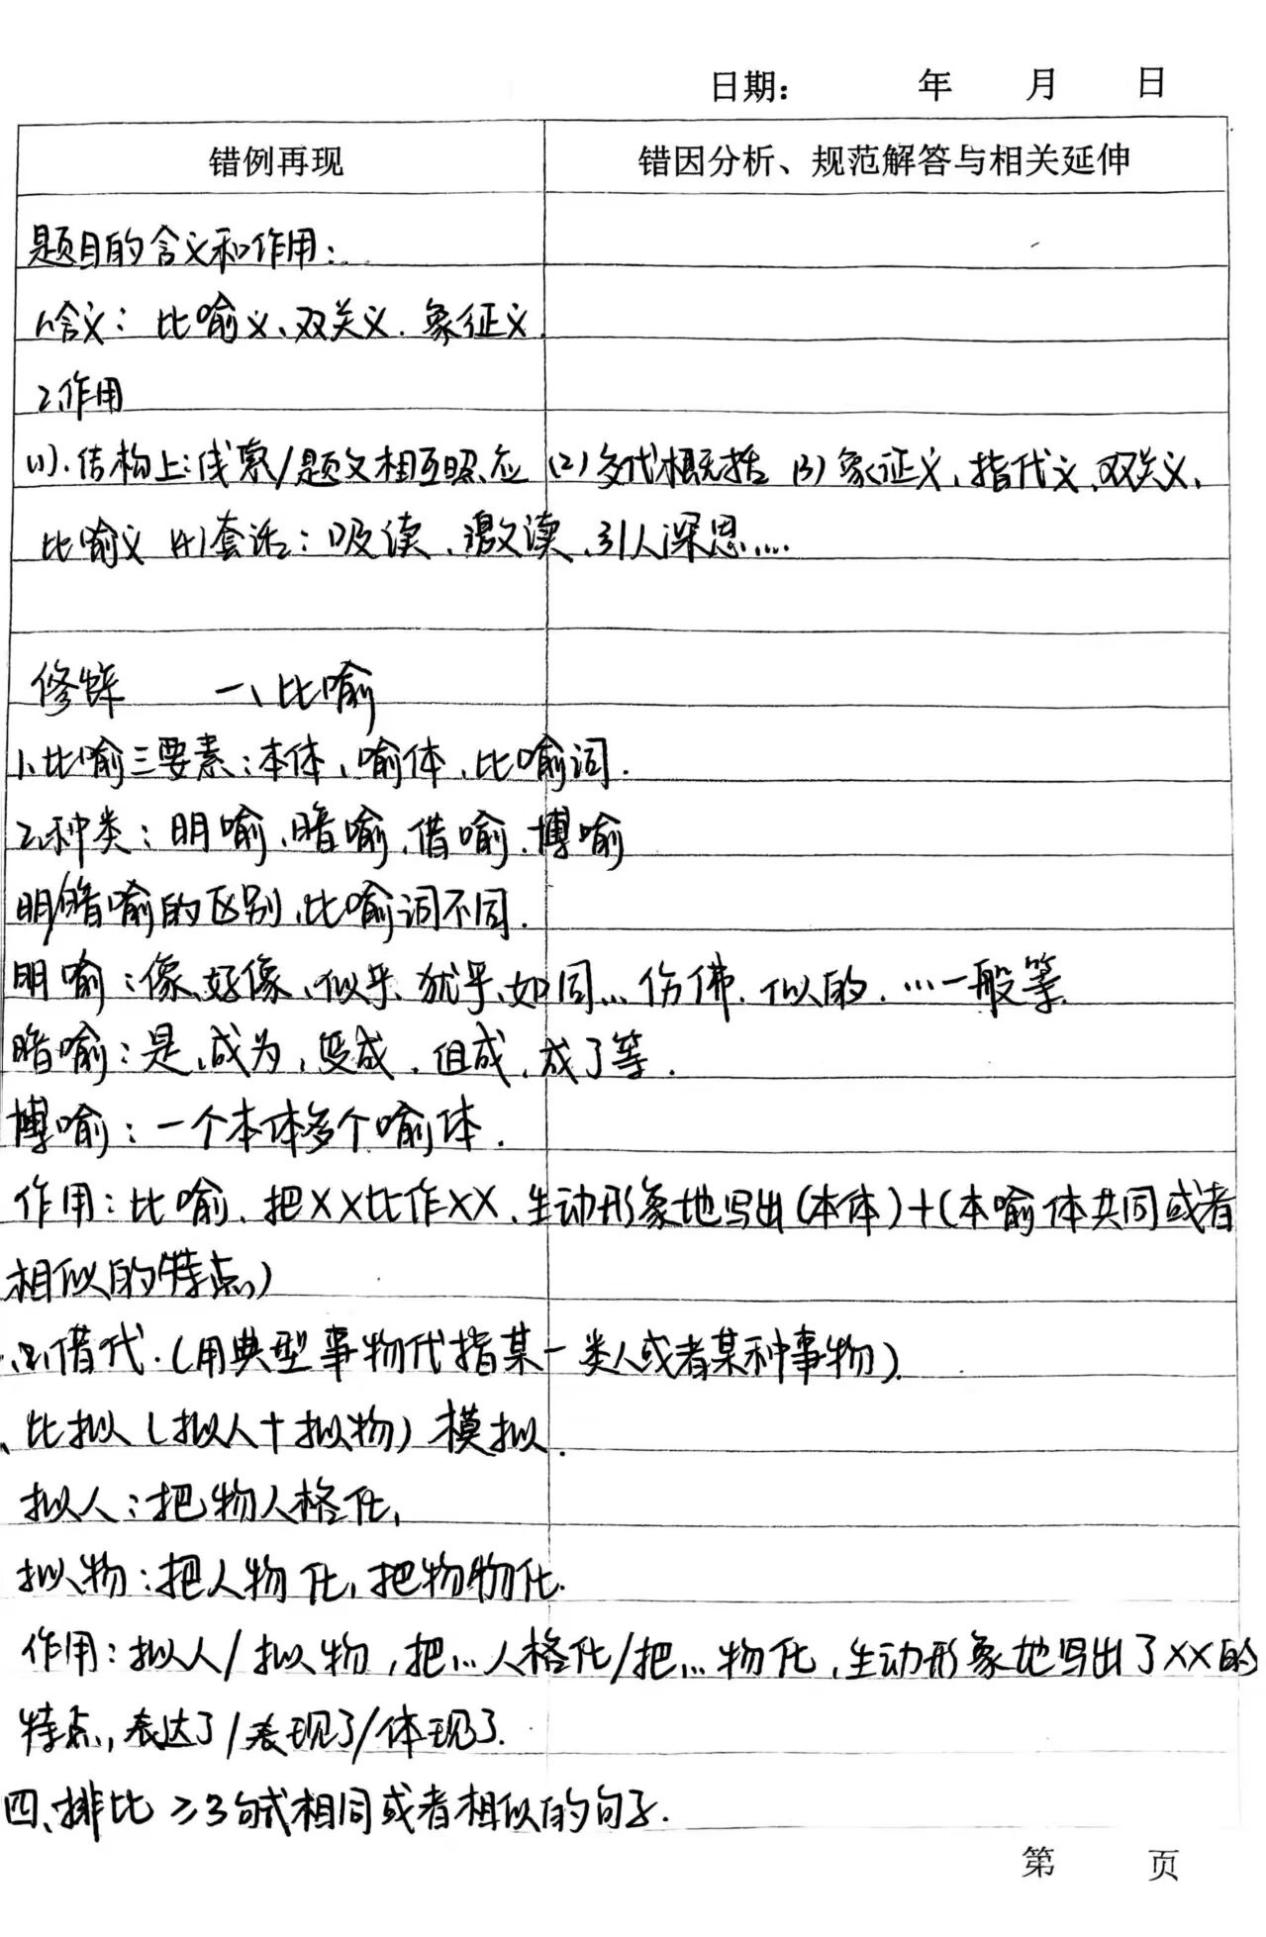 日期： 年 月 日
错例再现 错因分析、规范解答与相关延伸
题目的含义和作用：
1、含义：比喻义、双关义、象征义
2、作用
(1)、结构上：线索/题文相互照应 (2)交代概括 (3)象征义、指代义、双关义、
比喻义 (4)套话：吸读、激读、引人深思....
修辞 一、比喻
1、比喻三要素：本体、喻体、比喻词.
2、种类：明喻、暗喻、借喻、博喻
明/暗喻的区别、比喻词不同.
明喻：像、好像、似乎、犹乎、如同... 仿佛、似的、...一般等.
暗喻：是、成为、变成、组成、成了等.
博喻：一个本体多个喻体.
作用：比喻、把XX比作XX、生动形象地写出(本体)+(本喻体共同或者
相似的特点)
二、借代.(用典型事物代指某一类人或者某种事物).
、比拟(拟人+拟物)模拟.
拟人：把物人格化,
拟物：把人物化,把物物化.
作用：拟人/拟物,把...人格化/把...物化,生动形象地写出了XX的
特点,表达了/表现了/体现了.
四、排比 ≥3句式相同或者相似的句子.
第 页